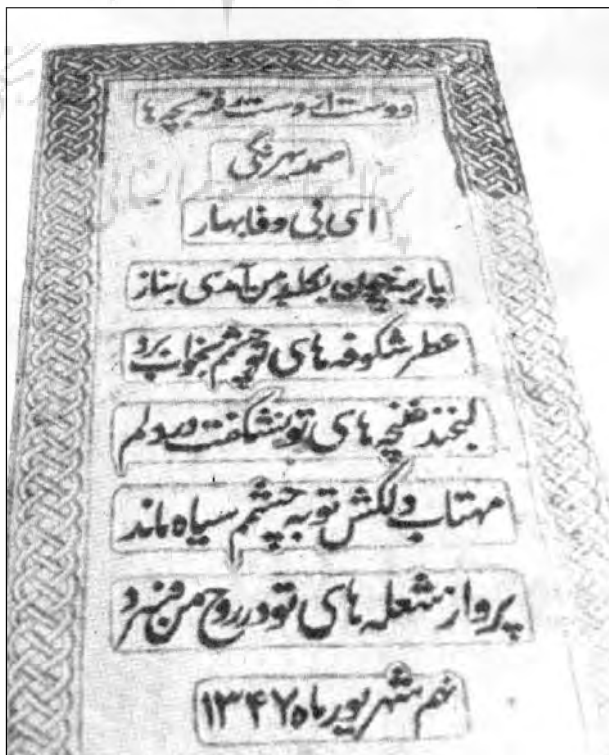 دوست از دست رفته بچه ها
صمد بهرنگی
ای بی وفا بهار
پارینه چون بکلبه من آمدی بناز
عطر شکوفه های تو چشمم بخواب برد
لبخند غنچه های تو نشکفت در دلم
مهتاب دلکش تو به چشمم سیاه ماند
پرواز شعله های تو در روح من فسرد
نهم شهریور ماه ۱۳۴۷